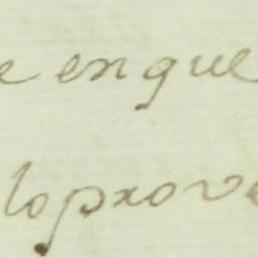 e en que
lo prove